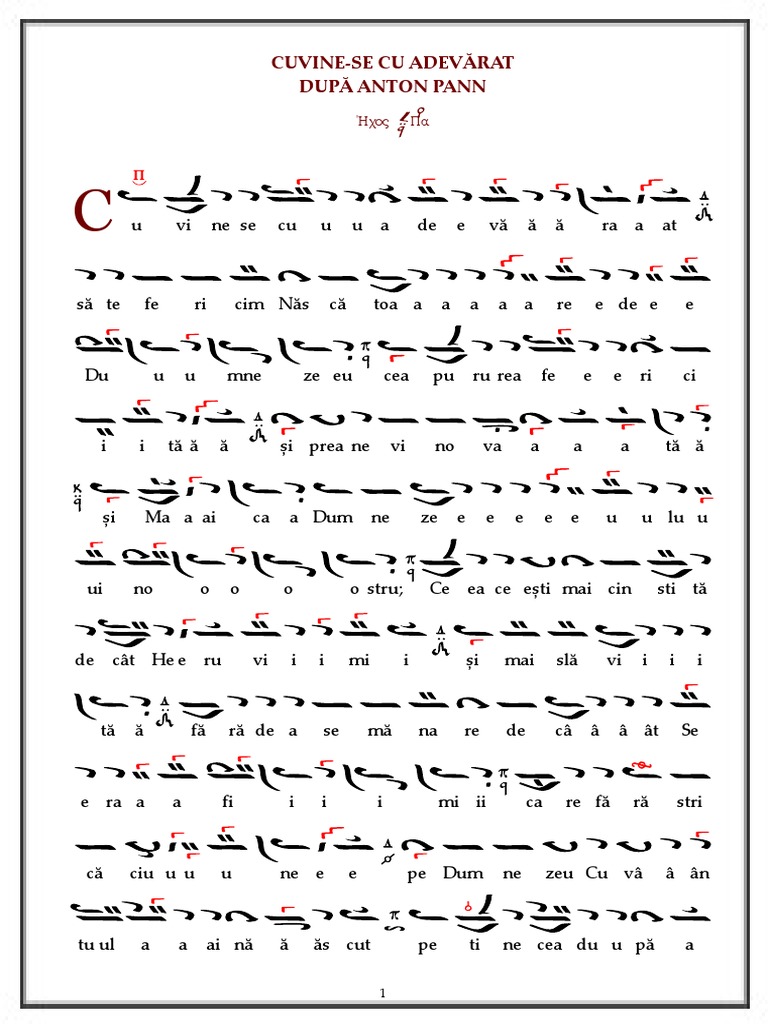 CUVINE-SE CU ADEVĂRAT
DUPĂ ANTON PANN
Ἦχος Πα
C u vi ne se cu u u a de e vă ă ă ra a at
să te fe ri cim Năs că toa a a a a a re e de e e
Du u u mne ze eu cea pu ru rea fe e e ri ci
i i tă ă ă și prea ne vi no va a a a tă ă
și Ma a ai ca a Dum ne ze e e e e e u u lu u
ui no o o o o stru; Ce ea ce ești mai cin sti tă
de cât He e ru vi i i mi i și mai slă vi i i i
tă ă fă ră de a se mă na re de câ â â ât Se
e ra a a fi i i i mi ii ca re fă ră stri
că ciu u u u ne e e pe Dum ne zeu Cu vâ â ân
tu ul a a ai nă ă ăs cut pe ti ne cea du u pă a
1